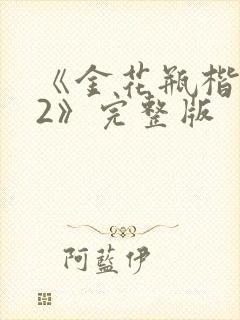 《金花瓶楷
2》完整版
阿蓝伊